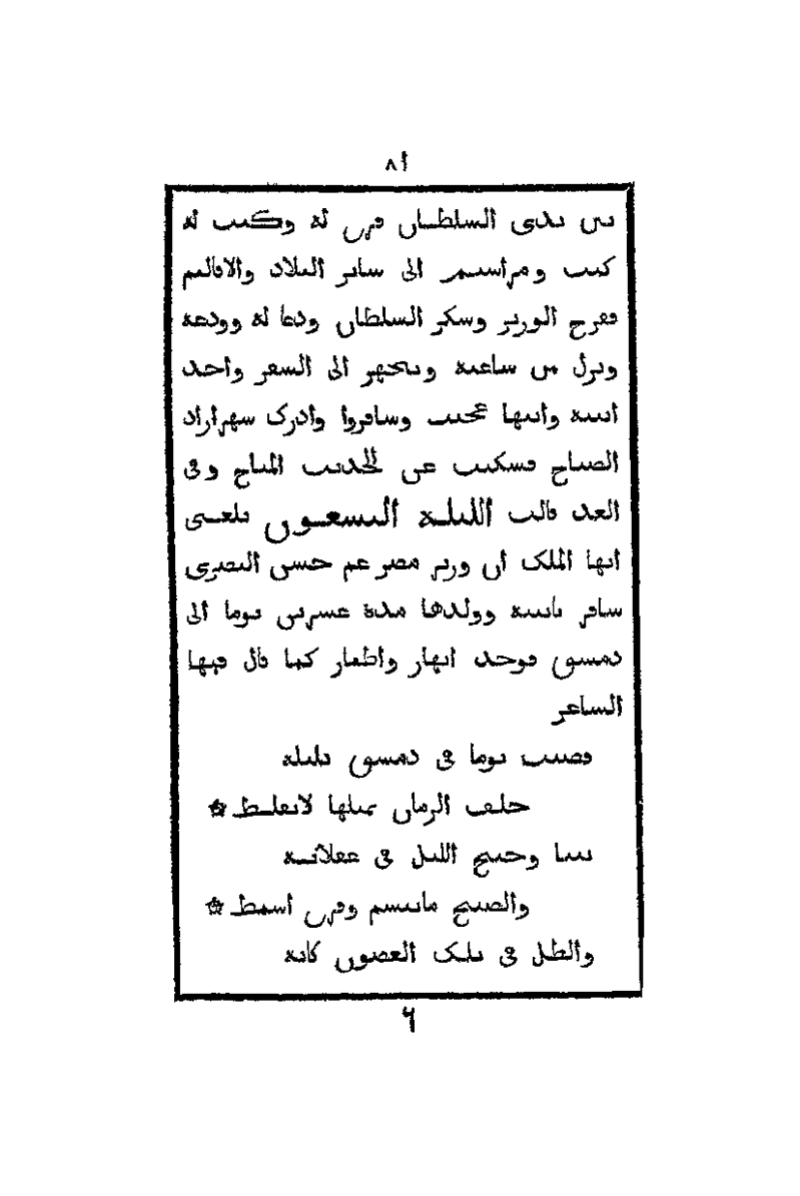 ٨١
بين يدى السلطان فرق له وكتب له
كتب ومراسيم الى ساير البلاد والاقاليم
ففرح الوزير وشكر السلطان ودعا له وودعه
ونزل من ساعته وتجهز الى السفر واخذ
ابنته وابنها عجيب وسافروا وادرك شهرازاد
الصباح فسكتت عن الحديث المباح وفى
الغد قالت الليلة التسعون بلغنى
ايها الملك ان وزير مصر عم حسن البصرى
سافر بابنته وولدها مدة عشرين يوما الى
دمشق فوجد انهار واطيار كما قال فيها
الشاعر
قضيت يوما فى دمشق بليلة
حلف الزمان بمثلها لايغلط *
بتنا وجنح الليل فى غفلاته
والصبح مابتسم وفرق اشمط *
والطل فى تلك الغصون كانه
٦